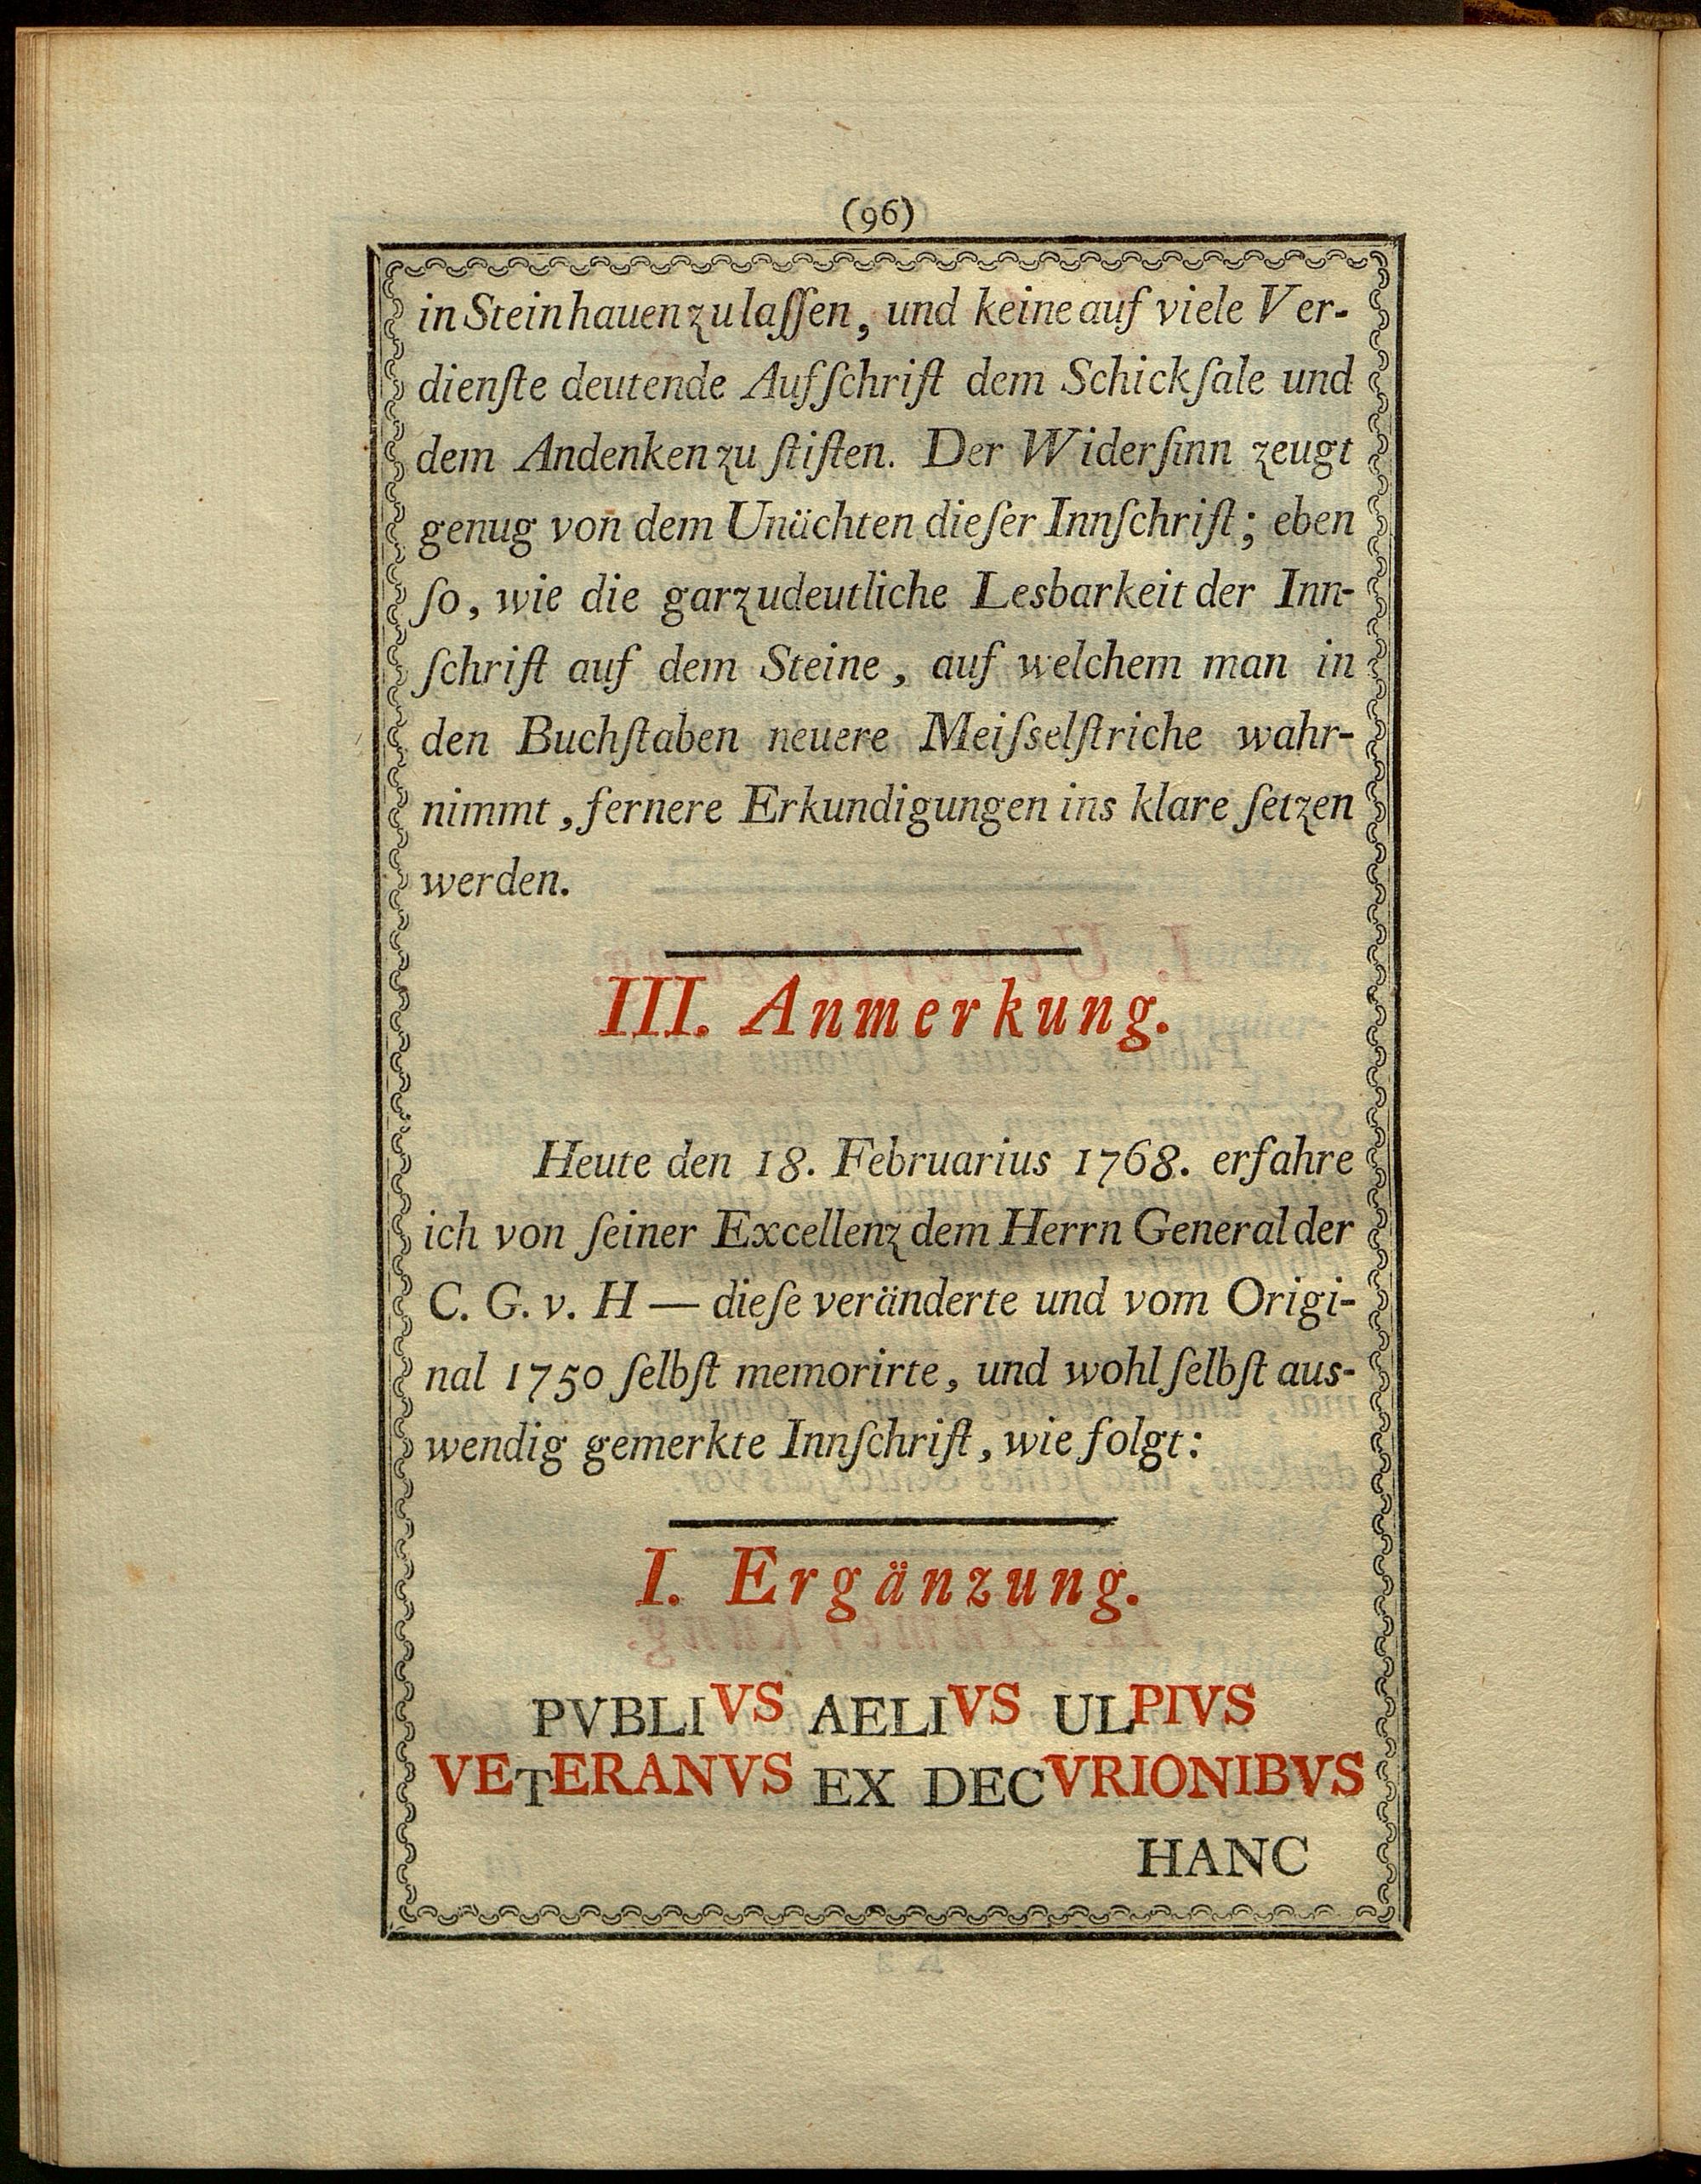 (96)
in Stein hauen zu laſſen, und keine auf viele Ver-
dienſte deutende Aufſchrift dem Schickſale und
dem Andenken zu ſtiften. Der Widerſinn zeugt
genug von dem Unächten dieſer Innſchrift; eben
ſo, wie die garzudeutliche Lesbarkeit der Inn-
ſchrift auf dem Steine, auf welchem man in
den Buchſtaben neuere Meiſselſtriche wahr-
nimmt, fernere Erkundigungen ins klare ſetzen
werden.
III. Anmerkung.
Heute den 18. Februarius 1768. erfahre
ich von ſeiner Excellenz dem Herrn General der
C. G. v. H — dieſe veränderte und vom Origi-
nal 1750 ſelbſt memorirte, und wohl ſelbſt aus-
wendig gemerkte Innſchrift, wie folgt:
I. Ergänzung.
PVBLIVS AELIVS ULPIVS
VETERANVS EX DECVRIONIBVS
HANC